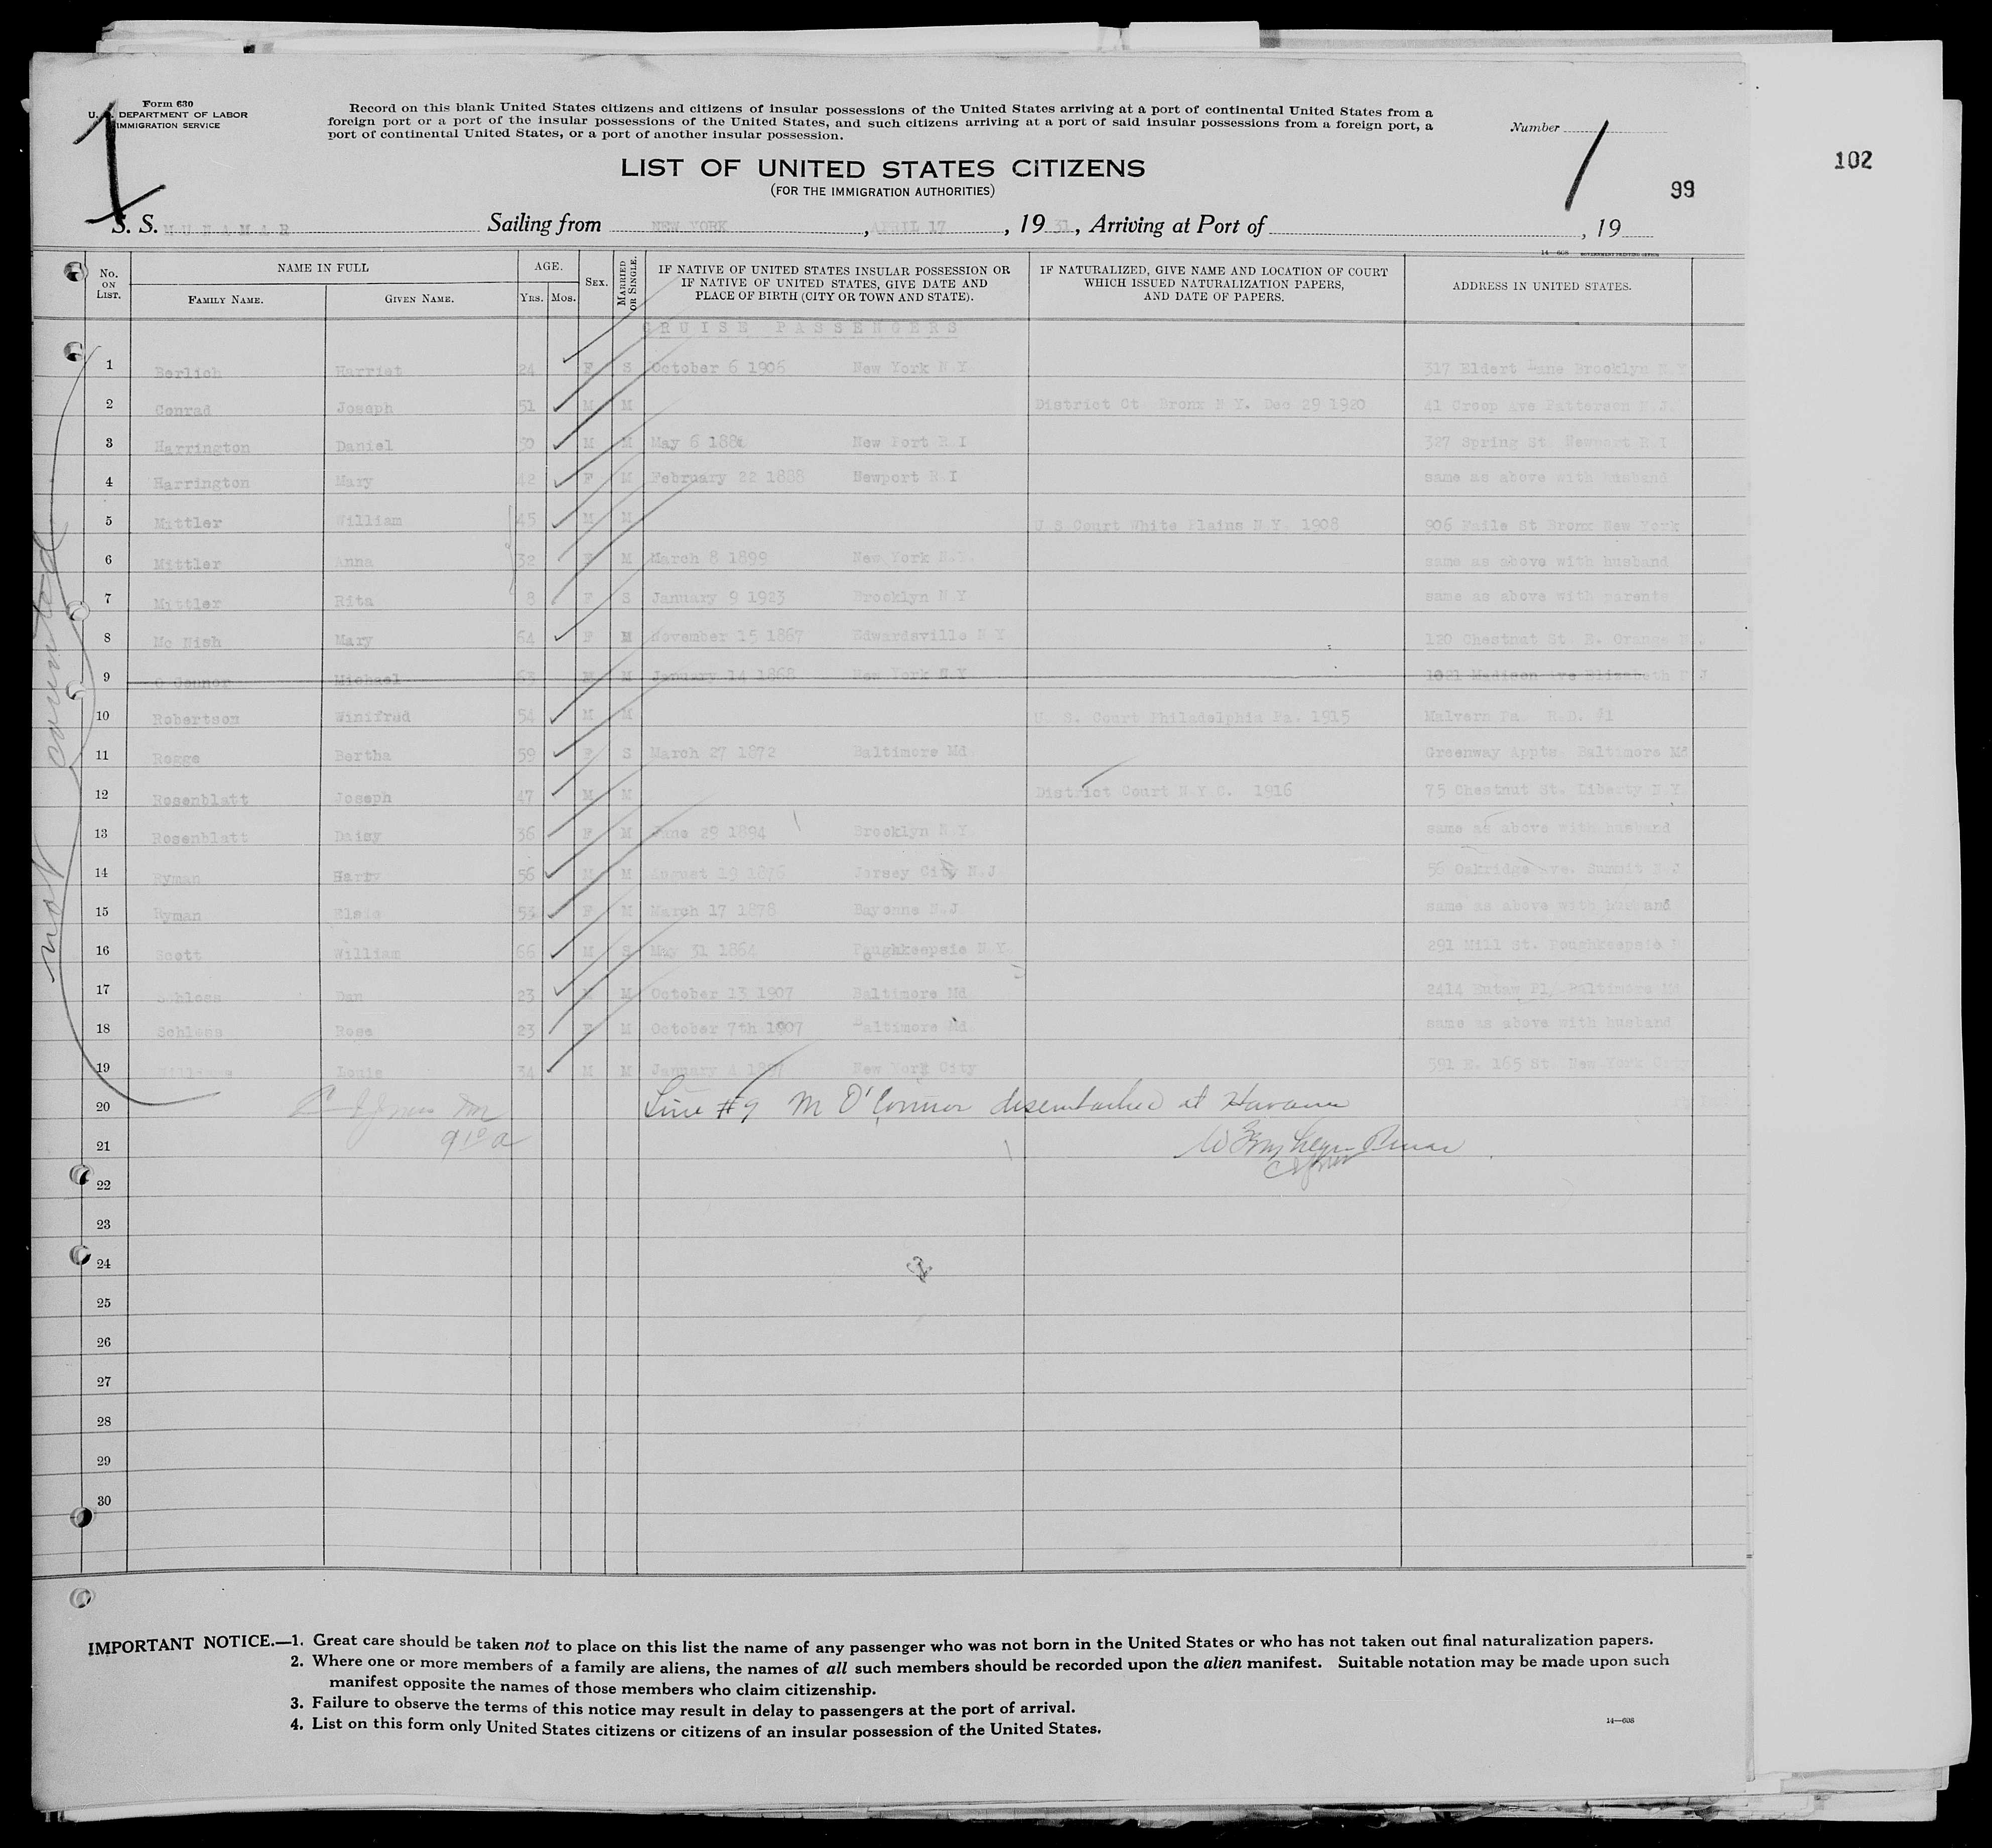 Form 630
U. S. DEPARTMENT OF LABOR
IMMIGRATION SERVICE
Record on this blank United States citizens and citizens of insular possessions of the United States arriving at a port of continental United States from a
foreign port or a port of the insular possessions of the United States, and such citizens arriving at a port of said insular possessions from a foreign port, a
port of continental United States, or a port of another insular possession.
Number
1
1
102
99
LIST OF UNITED STATES CITIZENS
(FOR THE IMMIGRATION AUTHORITIES)
S. S. MUNAMAR Sailing from NEW YORK, APRIL 17, 19 31, Arriving at Port of , 19
14—608 GOVERNMENT PRINTING OFFICE
No. ON LIST. NAME IN FULL FAMILY NAME. GIVEN NAME. AGE. YRS. MOS. SEX. MARRIED OR SINGLE. IF NATIVE OF UNITED STATES INSULAR POSSESSION OR IF NATIVE OF UNITED STATES, GIVE DATE AND PLACE OF BIRTH (CITY OR TOWN AND STATE). IF NATURALIZED, GIVE NAME AND LOCATION OF COURT WHICH ISSUED NATURALIZATION PAPERS, AND DATE OF PAPERS. ADDRESS IN UNITED STATES.
CRUISE PASSENGERS
1 Berlich Harriet 24 F S October 6 1906 New York N.Y. 317 Eldert Lane Brooklyn N.Y
2 Conrad Joseph 51 M M District Ct Bronx N Y. Dec 29 1920 41 Croop Ave Patterson N.J.
3 Harrington Daniel 50 M M May 6 188 New Port R I 327 Spring St Newport R I
4 Harrington Mary 42 F M February 22 1888 Newport R I same as above with husband
5 Mittler William 45 M M U S Court White Plains N Y. 1908 906 Faile St Bronx New York
6 Mittler Anna 32 F M March 8 1899 New York N.Y. same as above with husband
7 Mittler Rita 8 F S January 9 1923 Brooklyn N Y same as above with parents
8 Mc Nish Mary 64 F M November 15 1867 Edwardsville N Y 120 Chestnut St E. Orange N.J.
9 O Connor Michael 63 M M January 14 1868 New York N Y 1021 Madison Ave Elizabeth N J
10 Robertson Winifrud 54 M M U. S. Court Philadelphia Pa. 1915 Malvern Pa. R.D. #1
11 Rogge Bertha 59 F S March 27 1872 Baltimore Md Greenway Appts Baltimore Md
12 Rosenblatt Joseph 47 M M District Court N.Y.C. 1916 75 Chestnut St. Liberty N.Y.
13 Rosenblatt Daisy 36 F M June 29 1894 Brooklyn N.Y. same as above with husband
14 Ryman Harry 56 M M August 19 1876 Jersey City N.J 56 Oakridge Ave. Summit N J
15 Ryman Elsie 53 F M March 17 1878 Bayonne N.J same as above with husband
16 Scott William 66 M S May 31 1864 Poughkeepsie N Y. 291 Mill St. Poughkeepsie
17 Schloss Dan 23 M M October 13 1907 Baltimore Md 2414 Eutaw Pl, Baltimore Md
18 Schloss Rose 23 F M October 7th 1907 Baltimore Md same as above with husband
19 Williams Louis 34 M M January 4 1897 New York City 591 E. 165 St. New York City
20 Line #9 M O'Connor disembarked at Havana
21
22
23
24
25
26
27
28
29
30
not counted
IMPORTANT NOTICE.—1. Great care should be taken not to place on this list the name of any passenger who was not born in the United States or who has not taken out final naturalization papers.
2. Where one or more members of a family are aliens, the names of all such members should be recorded upon the alien manifest. Suitable notation may be made upon such
manifest opposite the names of those members who claim citizenship.
3. Failure to observe the terms of this notice may result in delay to passengers at the port of arrival.
4. List on this form only United States citizens or citizens of an insular possession of the United States.
14—608